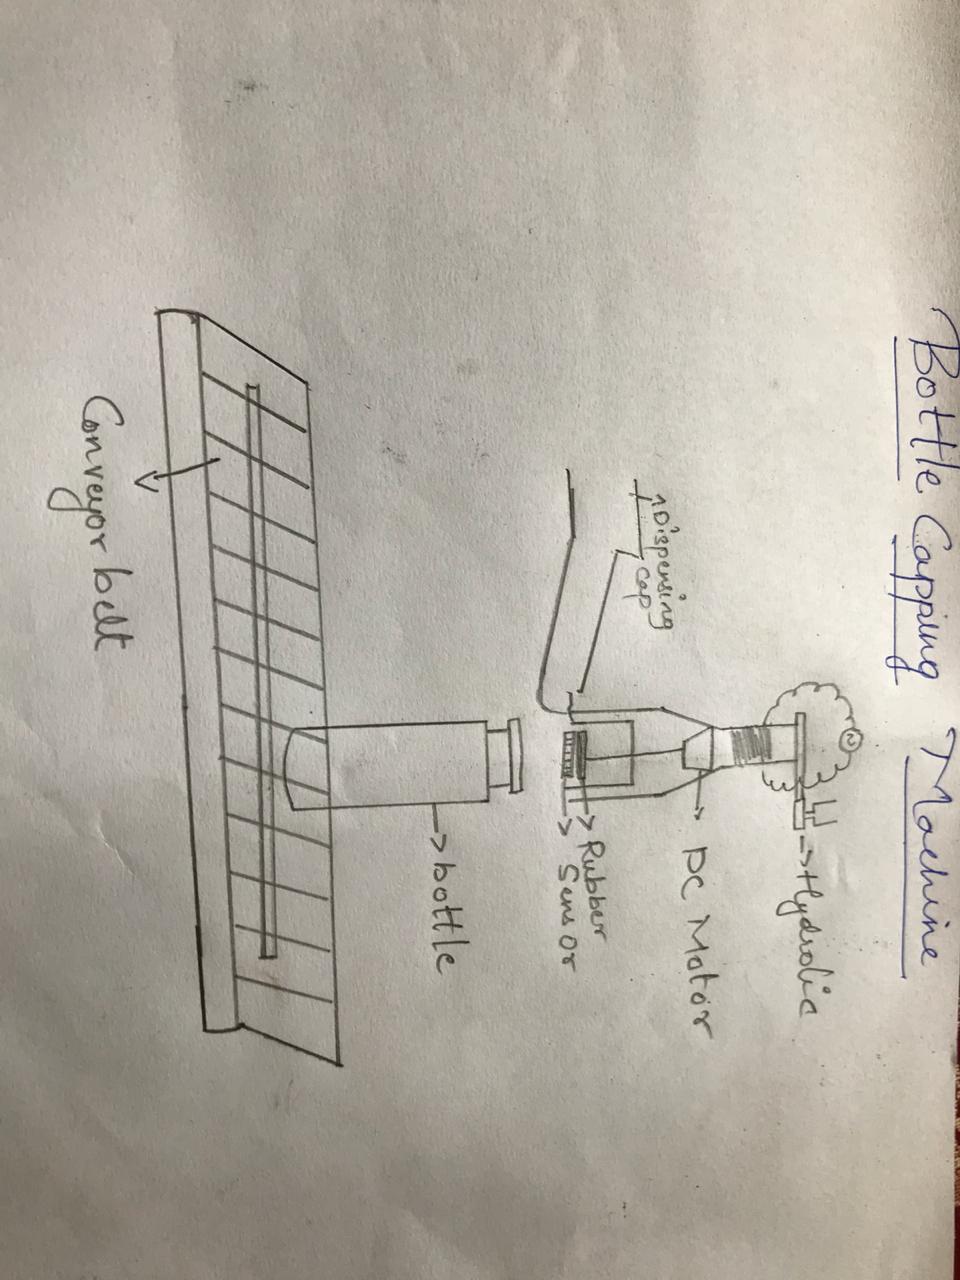 Bottle Capping Machine
Hydrolic
DC Motor
Dispensing
cap
Rubber
Sensor
bottle
Conveyor belt